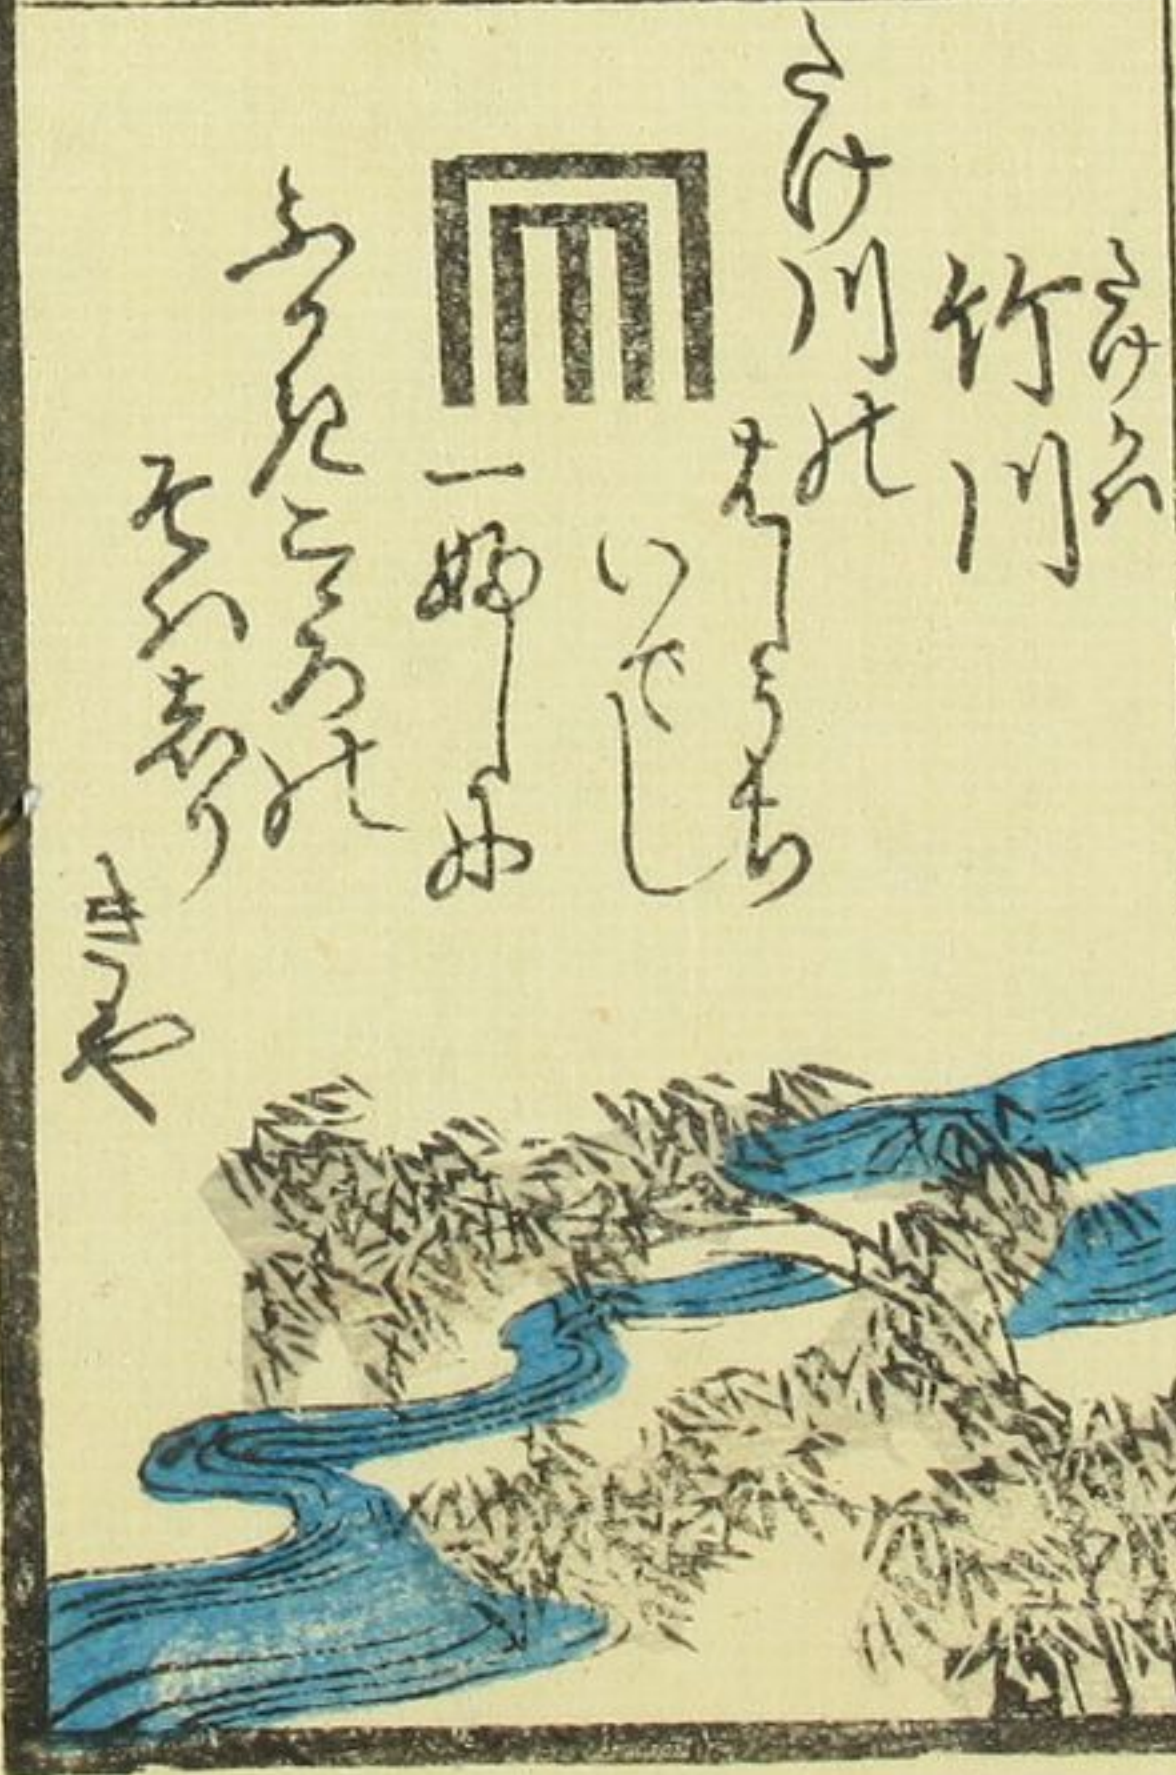 たけかは
竹川
たけ川の
はしうち
いでし
一ふしに
ふかきこゝろの
そこはしり
きつや